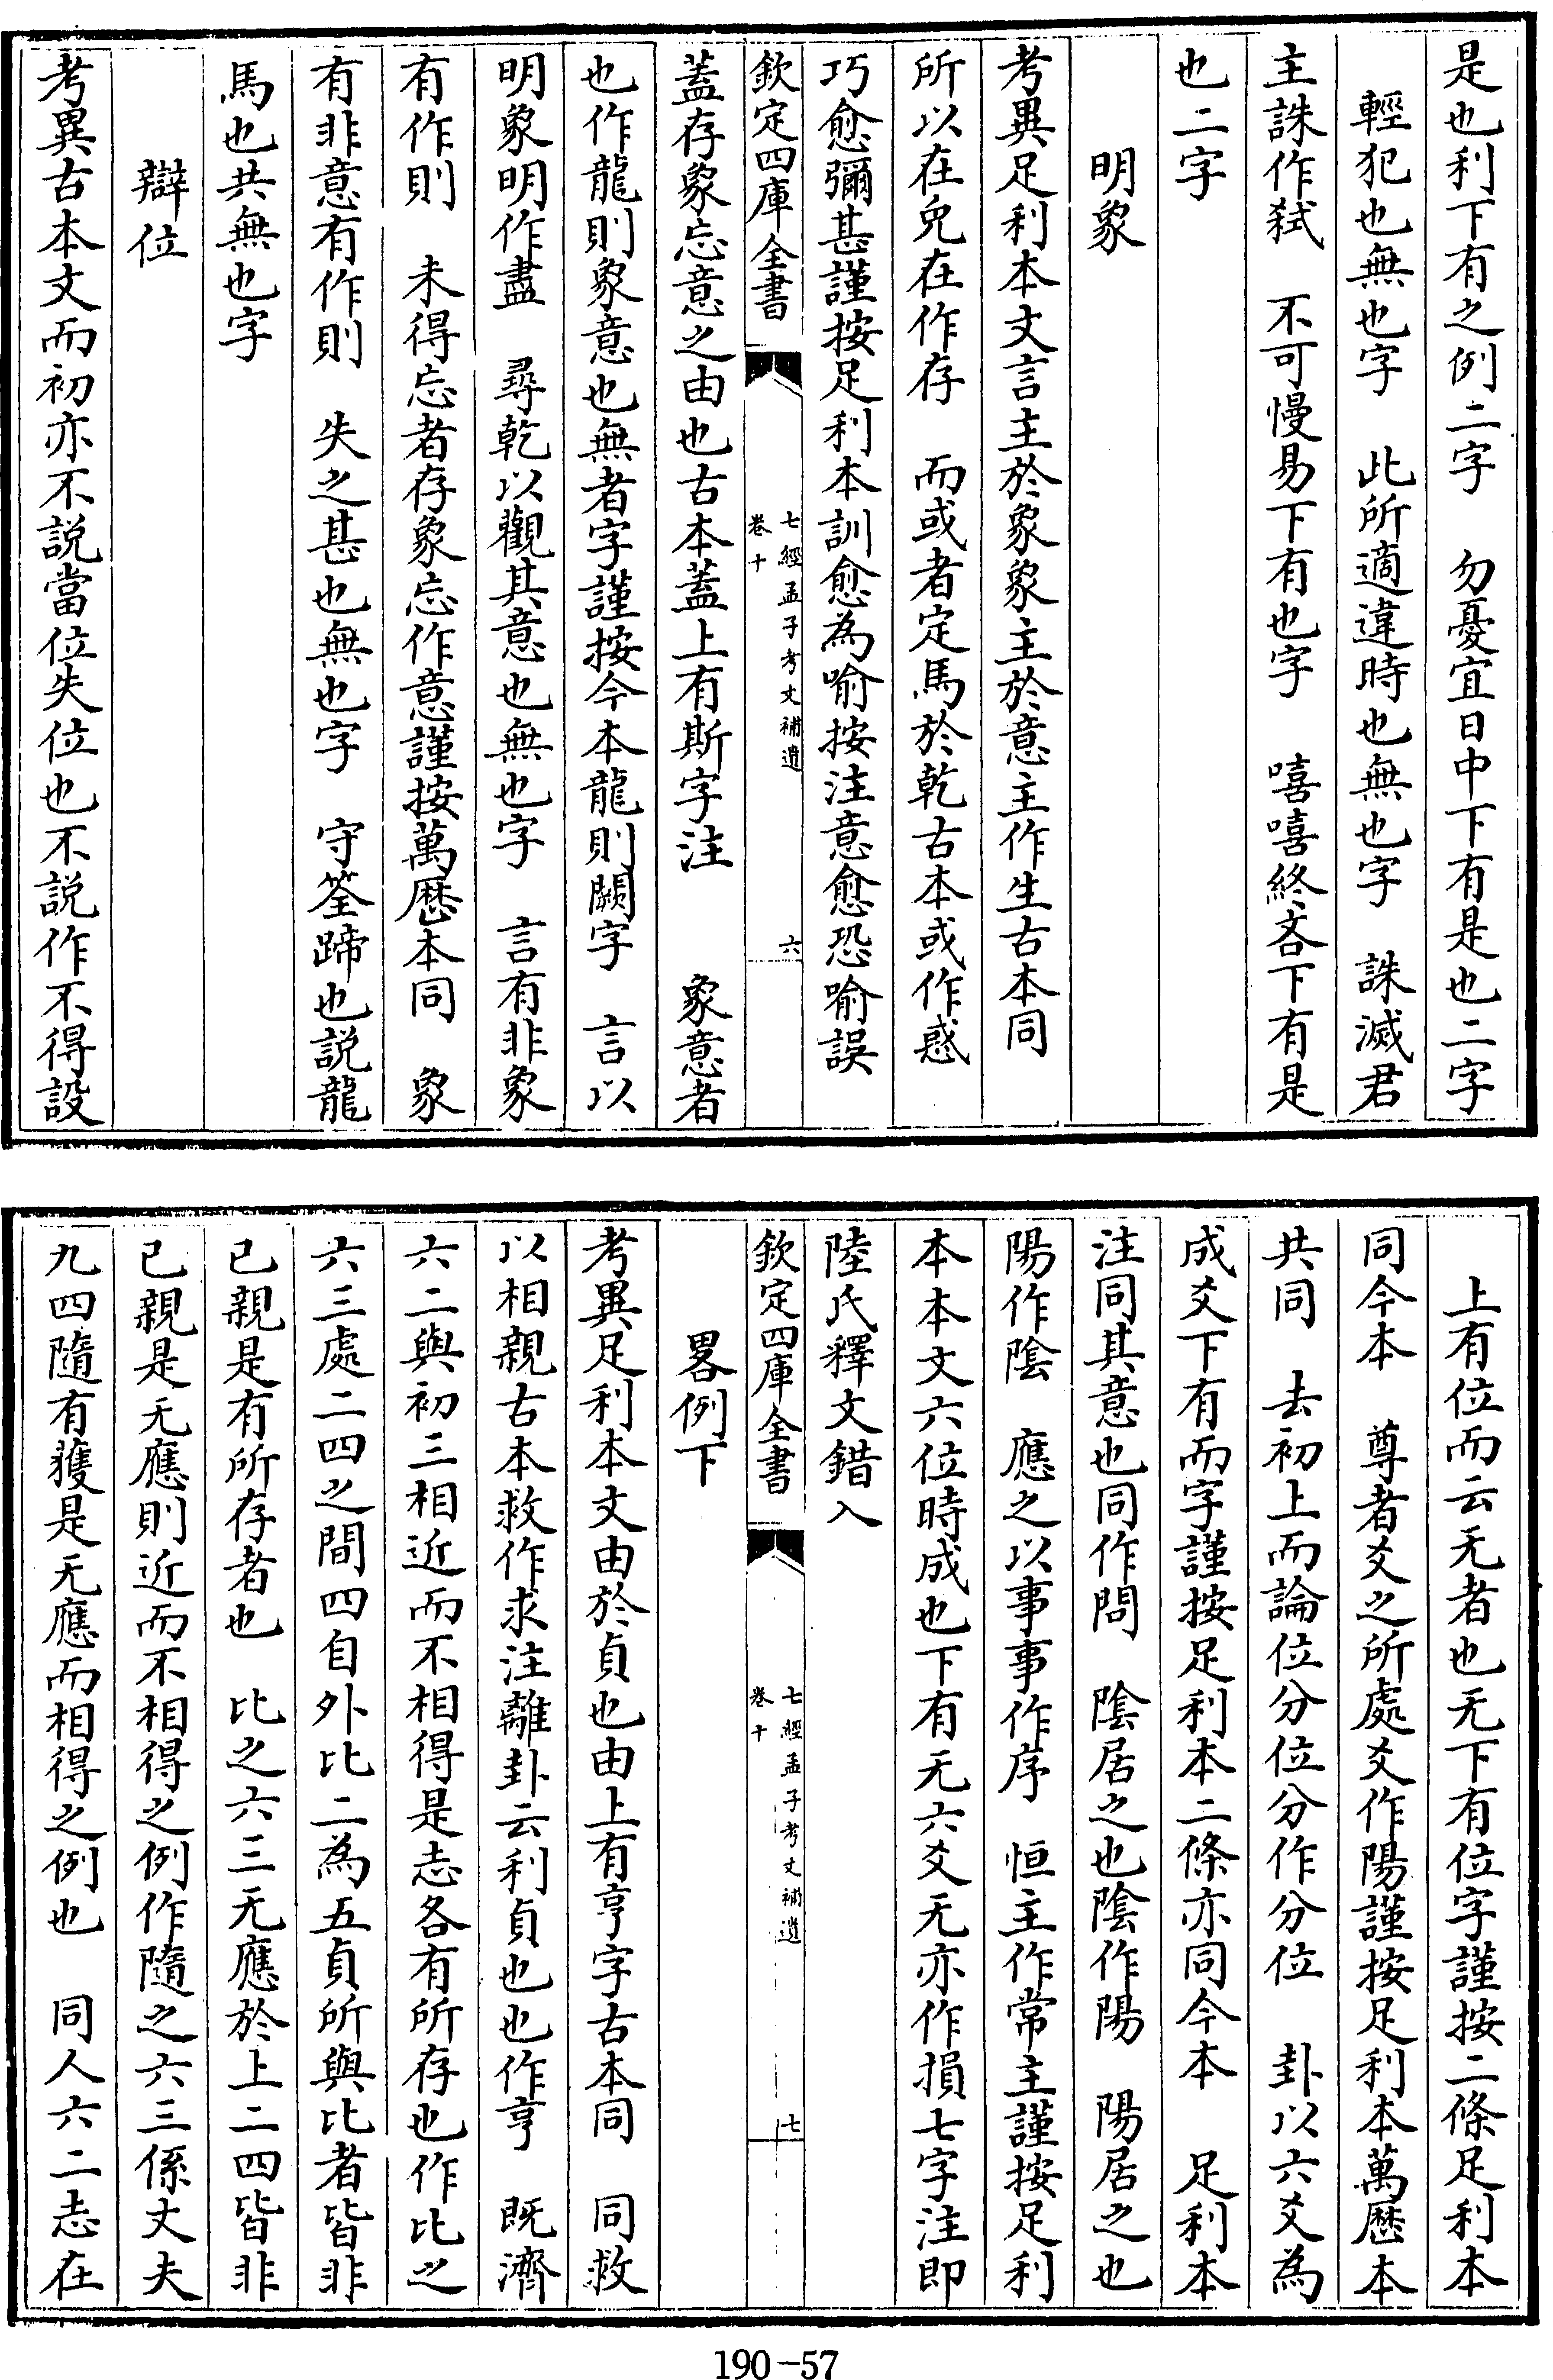 是也利下有之例二字　勿憂宜日中下有是也二字
輕犯也無也字　此所適違時也無也字　誅滅君
主誅作弒　不可慢易下有也字　嘻嘻終吝下有是
也二字
明象
考異足利本文言主於象象主於意主作生古本同
所以在兔在作存　而或者定馬於乾古本或作惑
巧愈彌甚謹按足利本訓愈為喻按注意愈恐喻誤
欽定四庫全書
七經孟子考文補遺
卷十
六
蓋存象忘意之由也古本蓋上有斯字注　象意者
也作龍則象意也無者字謹按今本龍則闕字　言以
明象明作盡　尋乾以觀其意也無也字　言有非象
有作則　未得忘者存象忘作意謹按萬歷本同　象
有非意有作則　失之甚也無也字　守筌蹄也説龍
馬也共無也字
辯位
考異古本文而初亦不説當位失位也不説作不得設
上有位而云无者也无下有位字謹按二條足利本
同今本　尊者爻之所處爻作陽謹按足利本萬歷本
共同　去初上而論位分位分作分位　卦以六爻為
成爻下有而字謹按足利本二條亦同今本　足利本
注同其意也同作問　陰居之也陰作陽　陽居之也
陽作陰　應之以事事作序　恒主作常主謹按足利
本本文六位時成也下有无六爻无亦作損七字注即
陸氏釋文錯入
欽定四庫全書
七經孟子考文補遺
卷十
七
畧例下
考異足利本文由於貞也由上有亨字古本同　同救
以相親古本救作求注離卦云利貞也也作亨　既濟
六二與初三相近而不相得是志各有所存也作比之
六三處二四之間四自外比二為五貞所與比者皆非
已親是有所存者也　比之六三无應於上二四皆非
已親是无應則近而不相得之例作隨之六三係丈夫
九四隨有獲是无應而相得之例也　同人六二志在
190-57